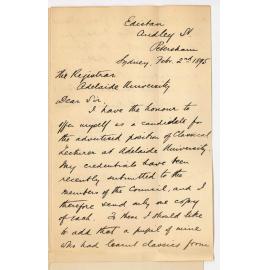 Edistan
Audley St
Petersham
Sydney. Feb. 2nd 1895
The Registrar
Adelaide University
Dear Sir,
I have the honour to
offer myself as a candidate for
the advertised position of Classical
Lecturer at Adelaide University.
My credentials have been
recently submitted to the
members of the Council, and I
therefore send only one copy
of each. To them I should like
to add that a pupil of mine
who had learnt classics from